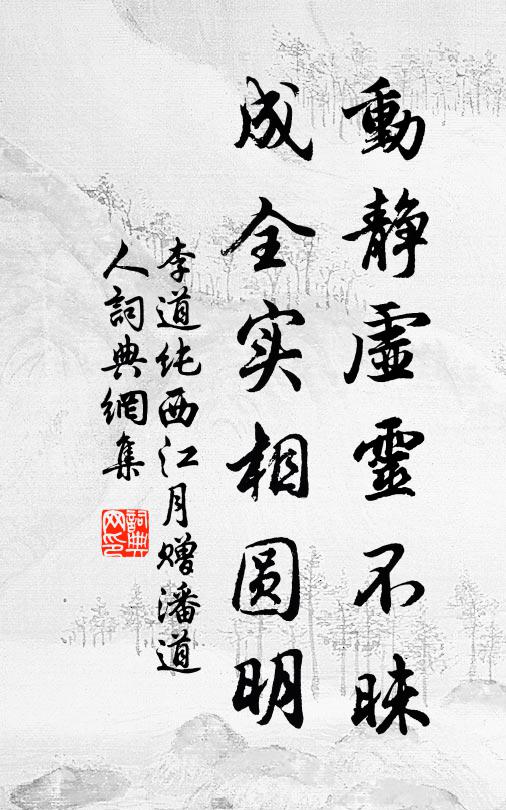 動靜虛靈不昧
成全实相圆明
李道纯西江月赠潘道
人詞典網集
詞典
网印